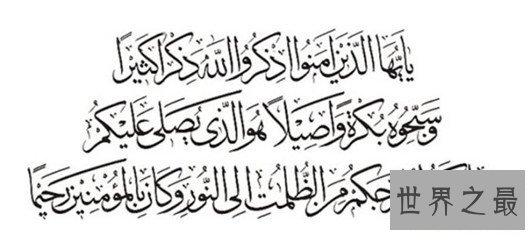 يايها الذين امنوا اذكروا الله ذكرا كثيرا
وسبحوه بكرة واصيلا هو الذى يصلى عليكم
من الظلمت الى النور وكان بالمؤمنين رحيما
世界之最